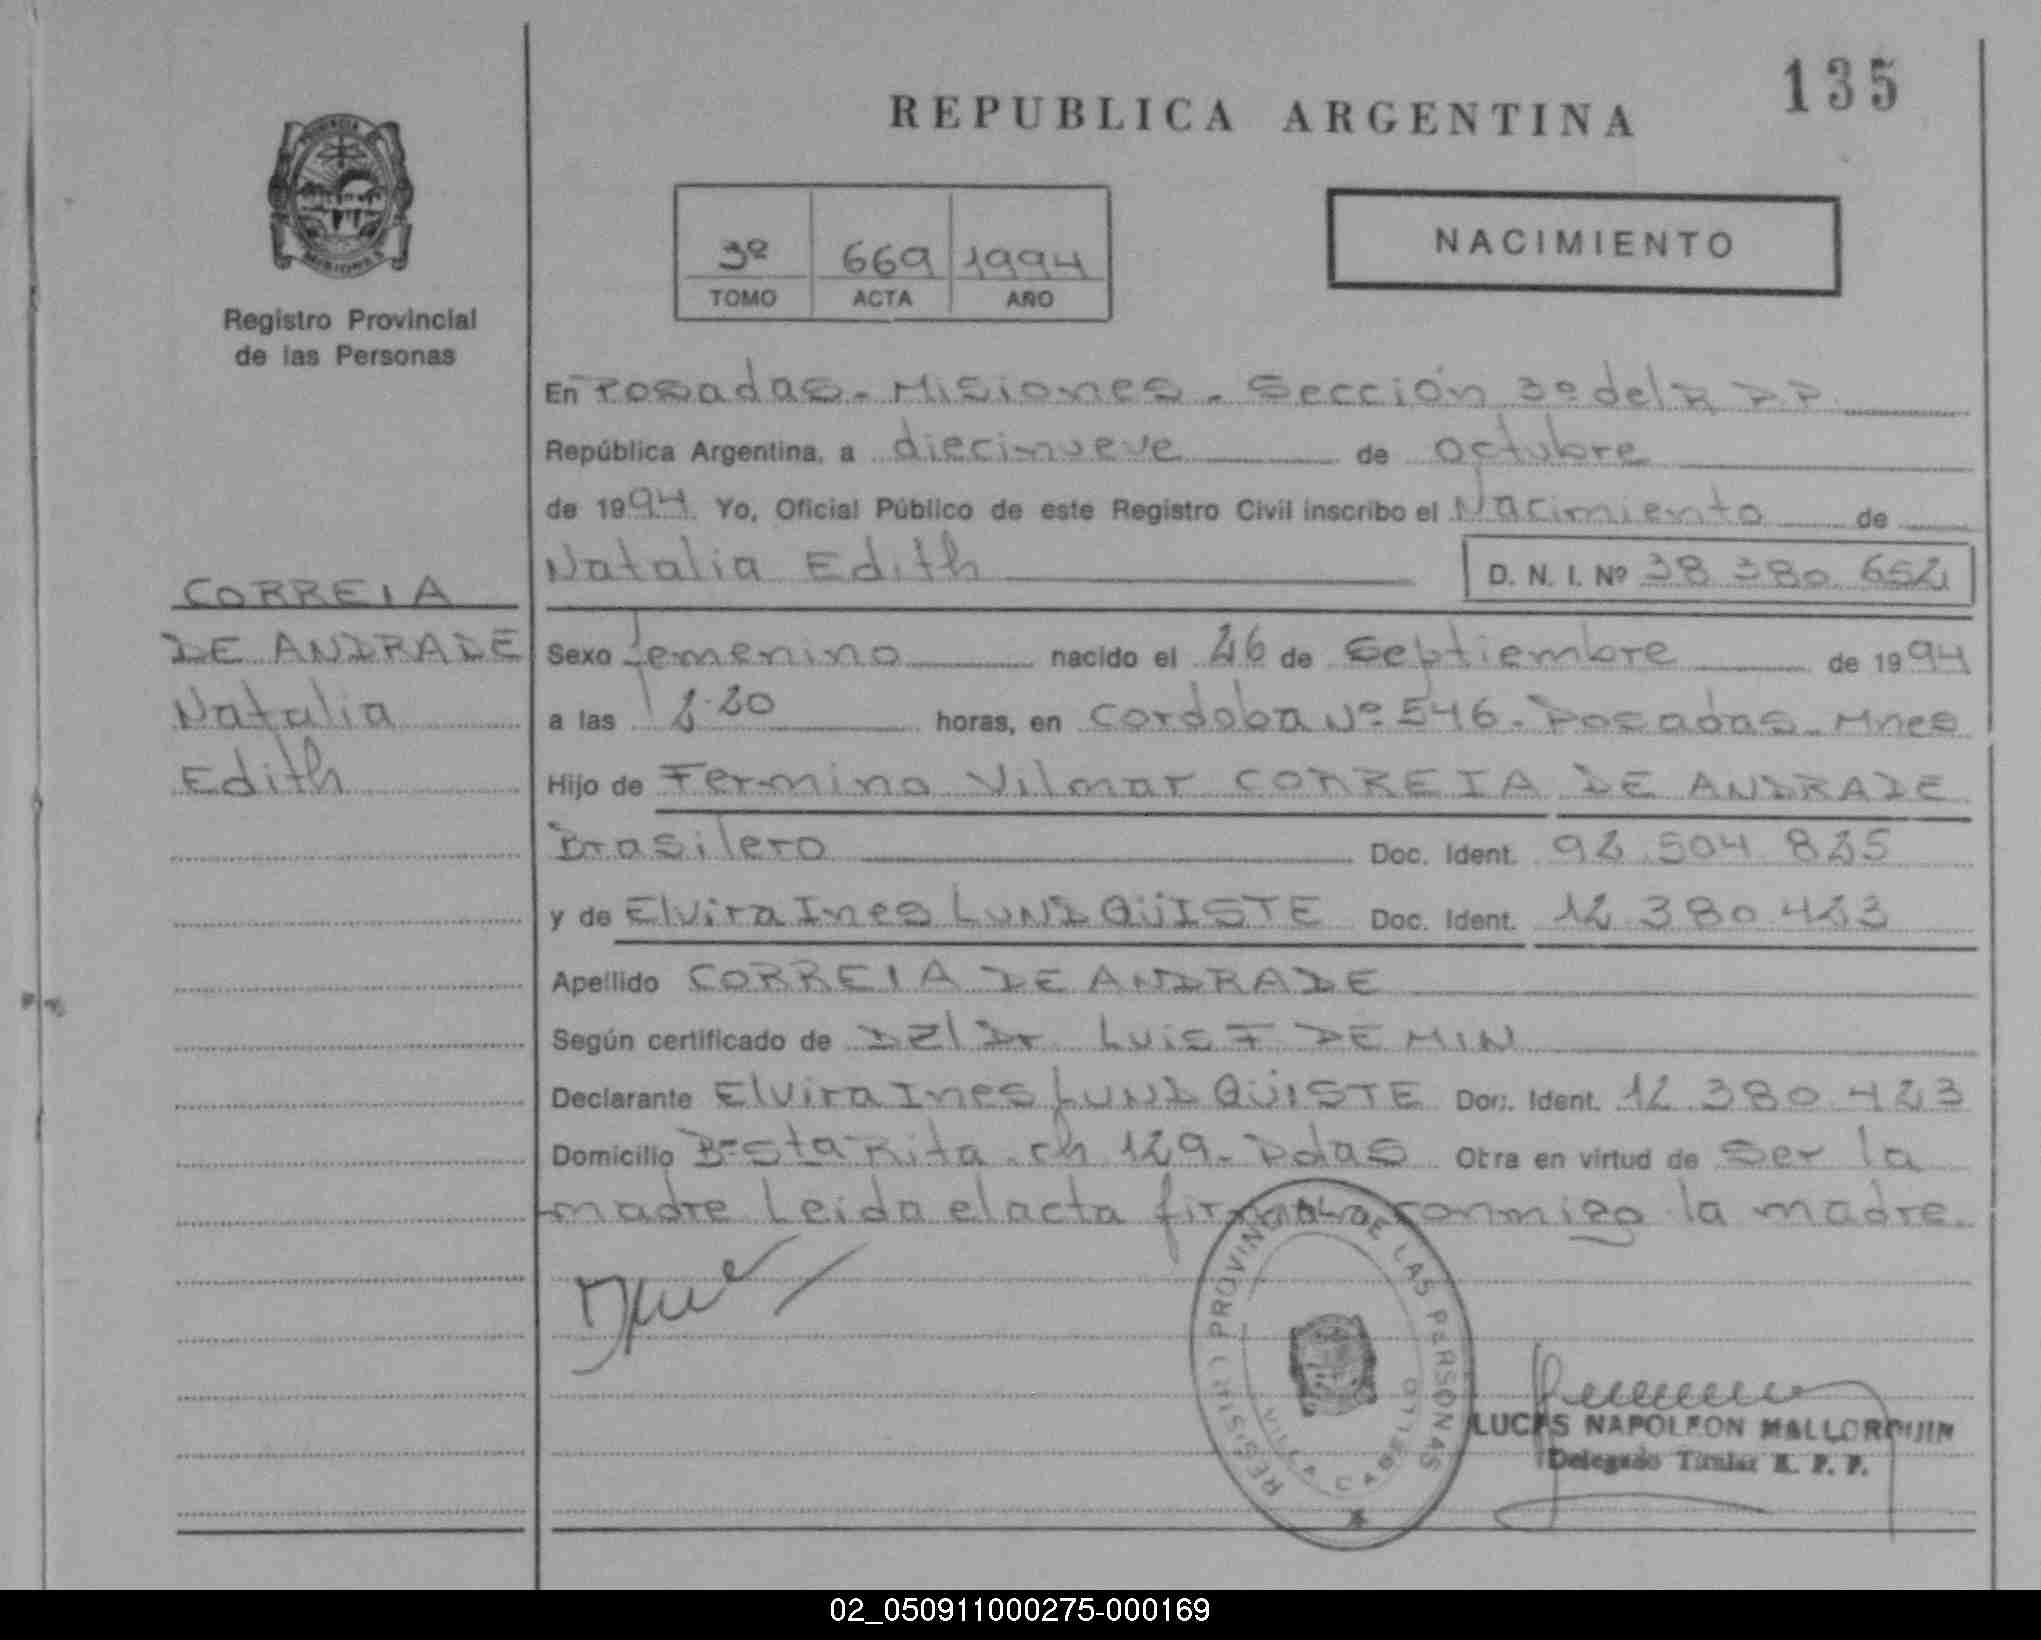 135
REPUBLICA ARGENTINA
PROVINCIA
MISIONES
Registro Provincial
de las Personas
3º 669 1994
TOMO ACTA AÑO
NACIMIENTO
En Posadas - Misiones - Sección 3º del R P P
República Argentina, a diecinueve de octubre
de 1994 Yo, Oficial Público de este Registro Civil inscribo el Nacimiento de
Natalia Edith D. N. I. Nº 38 380 652
CORREIA
DE ANDRADE
Natalia
Edith
Sexo femenino nacido el 26 de Septiembre de 1994
a las 12.20 horas, en Cordoba Nº 546 - Posadas - Mnes
Hijo de Fermino Vilmar CORREIA DE ANDRADE
Brasilero Doc. Ident. 92.504.825
y de Elvira Ines LUNDQÜISTE Doc. Ident. 12 380 423
Apellido CORREIA DE ANDRADE
Según certificado de Del Dr Luis F DE MIN
Declarante Elvira Ines LUNDQÜISTE Doc. Ident. 12.380.423
Domicilio Bº Sta Rita - ch 129 - Pdas Otra en virtud de Ser la
madre Leida el acta firmando conmigo la madre.
REGISTRO PROVINCIAL DE LAS PERSONAS
VILLA CABELLO
LUCAS NAPOLEON MALLORQUIN
Delegado Titular R. P. P.
02_050911000275-000169